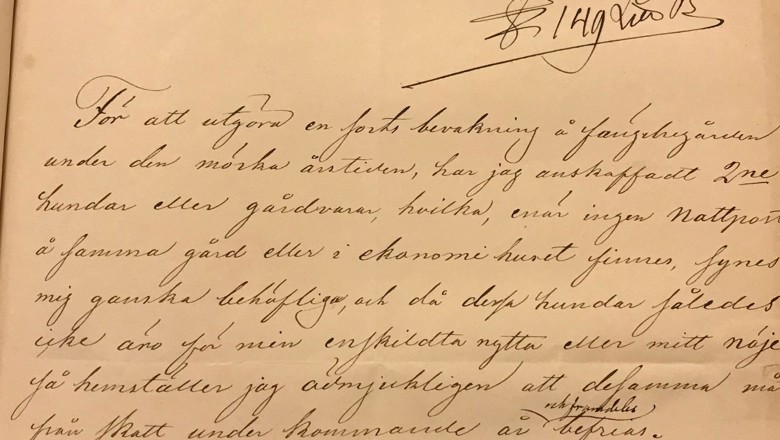 149
För att utgöra en sorts bevakning å fängelsegården
under den mörka årstiden, har jag anskaffadt 2ne
hundar eller gårdvarar, hvilka, enär ingen Nattpost
å samma gård eller i ekonomi huset finnes, synes
mig ganska behöfliga, och då dessa hundar således
icke äro för min enskildta nytta eller mitt nöje
så hemställer jag ödmjukligen att desamma må
från skatt under kommande år befrias.